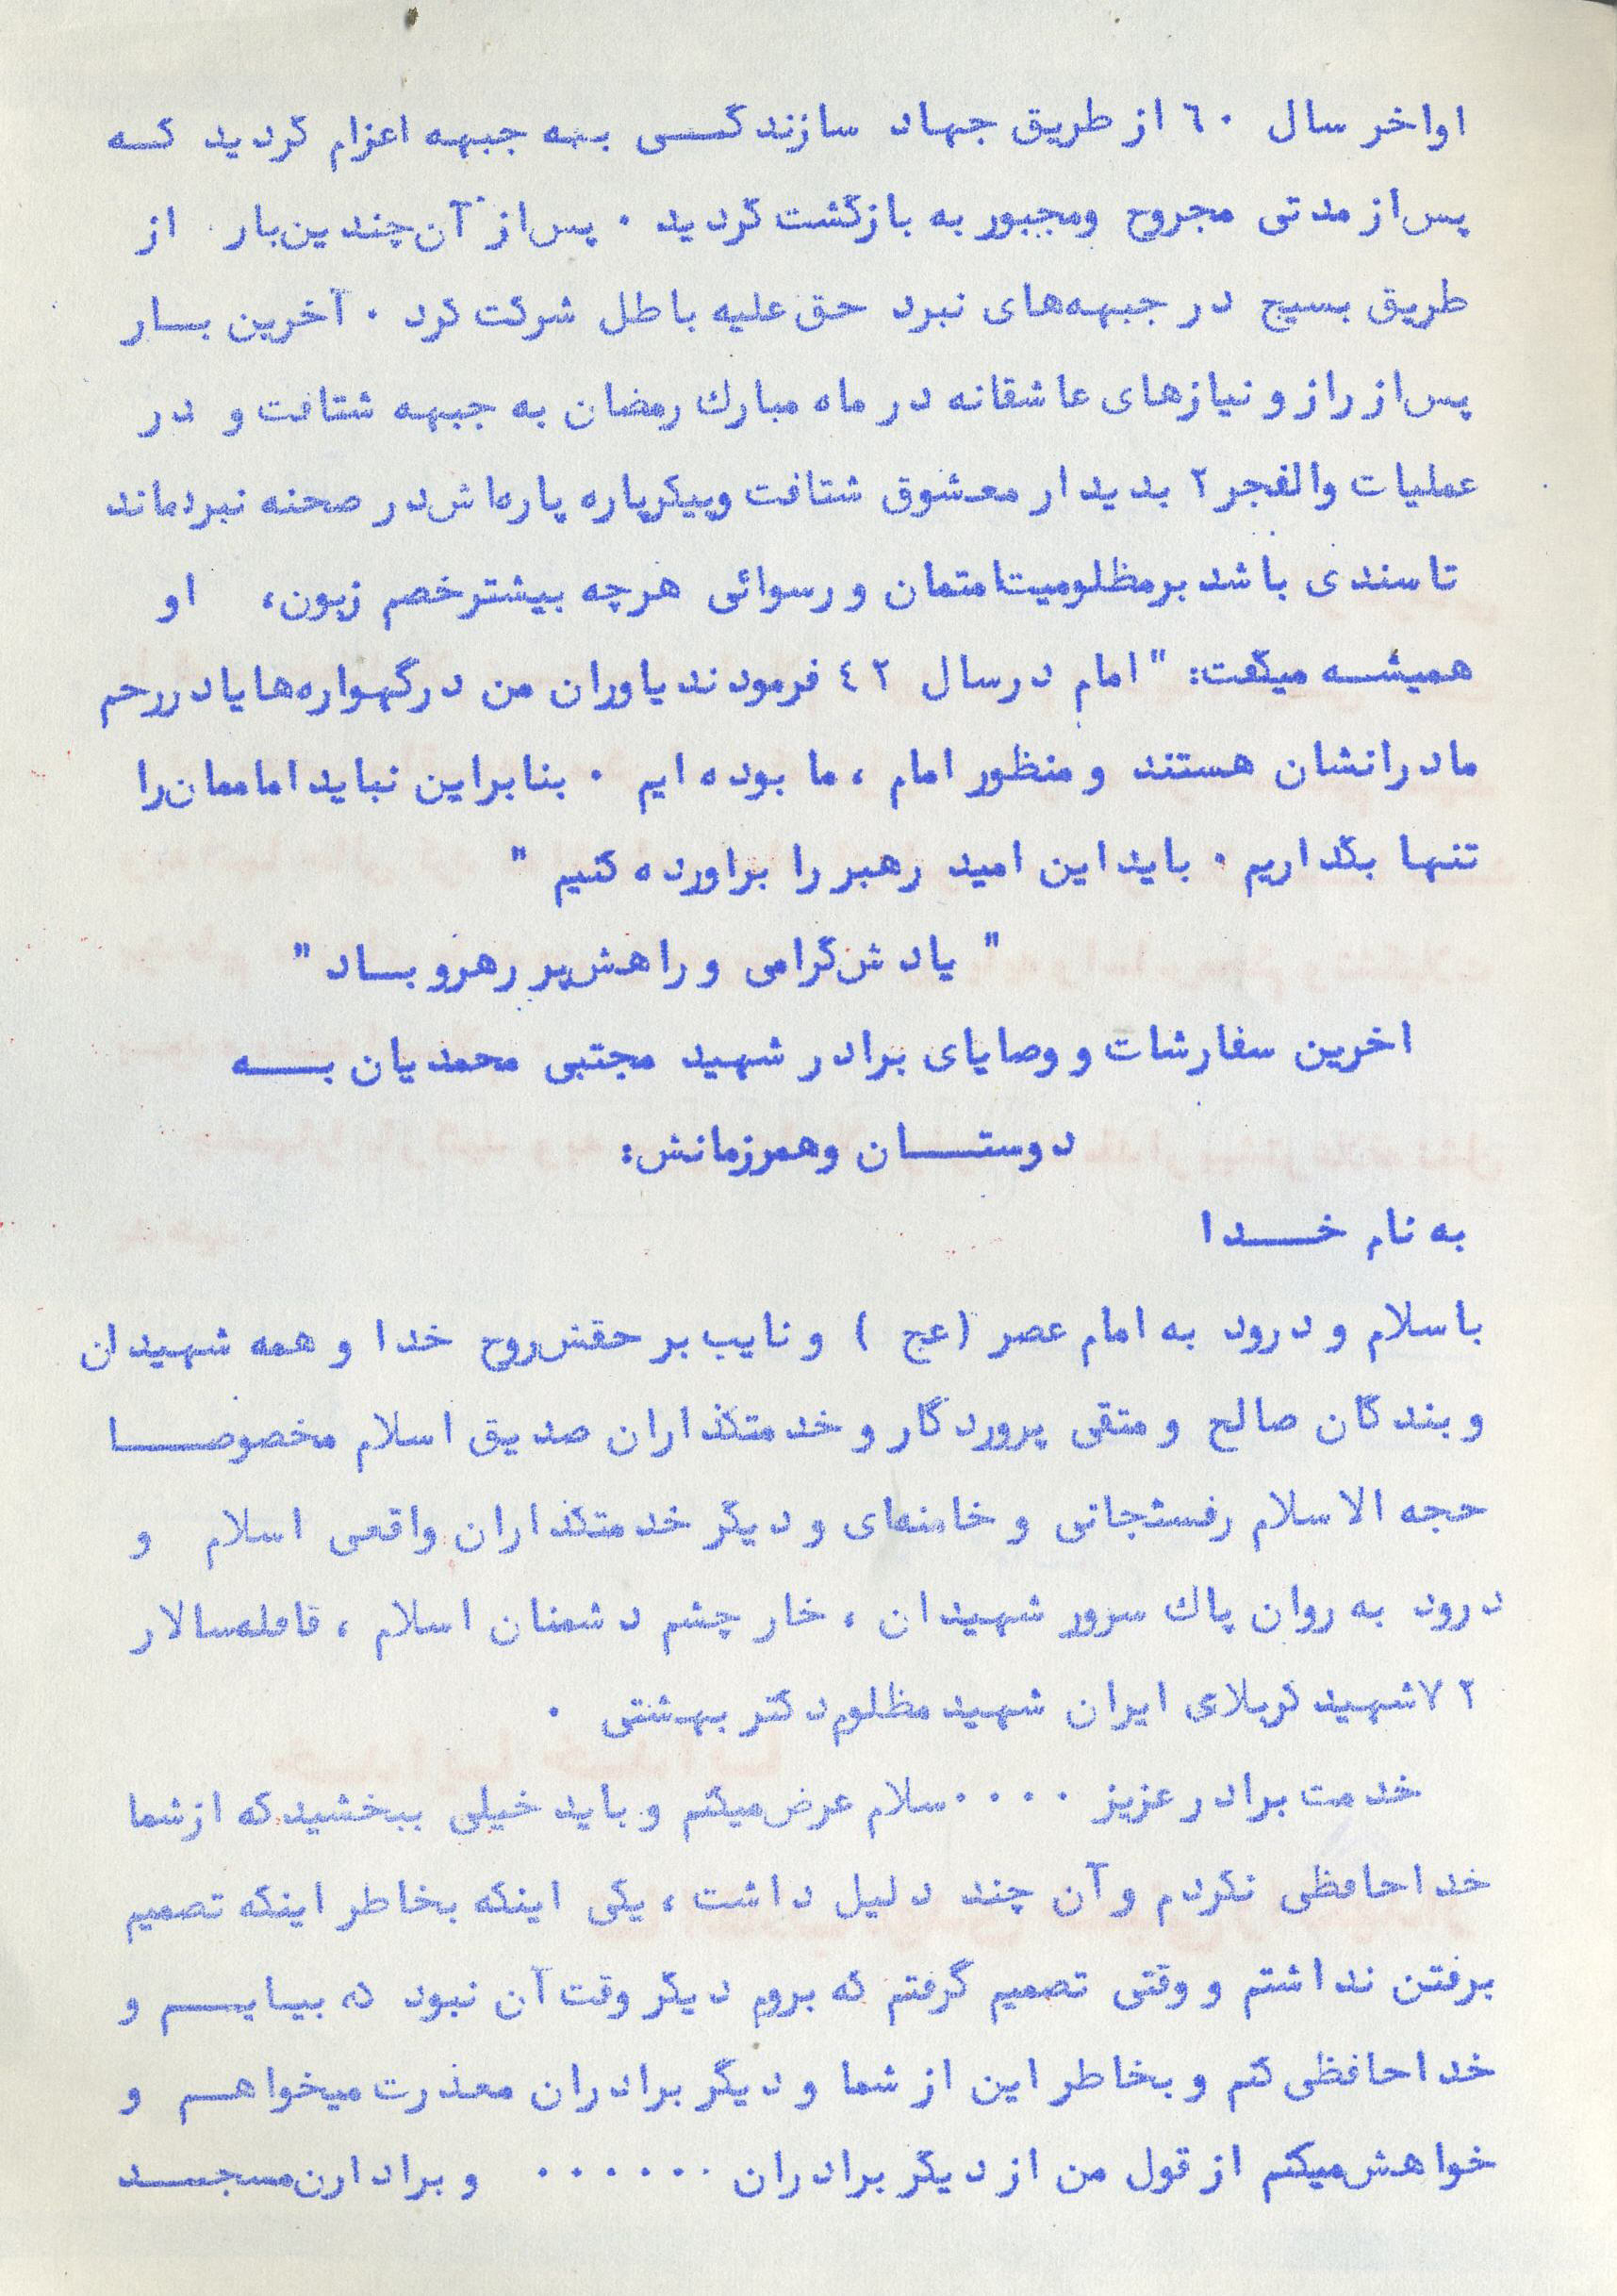 اواخر سال ٦٠ از طریق جهاد سازندگی به جبهه اعزام گردید که
پس‌از مدتی مجروح ومجبور به بازگشت گردید . پس‌از آن چندین‌بار از
طریق بسیج در جبهه‌های نبرد حق علیه باطل شرکت کرد . آخرین بار
پس‌از راز و نیازهای عاشقانه در ماه مبارك رمضان به جبهه شتافت و در
عملیات والفجر ٢ بدیدار معشوق شتافت وپیکر پاره پاره‌اش‌در صحنه نبردماند
تاسندی باشد برمظلومیت‌امتمان و رسوائی هرچه بیشتر خصم زبون، او
همیشه میگفت: " امام درسال ٤٢ فرمودند یاوران من درگهواره‌هایادر‌رحم
مادرانشان هستند و منظور امام ، ما بوده ایم . بنابراین نباید اماممان‌را
تنها بگذاریم . باید این امید رهبر را براورده کنیم "
" یادش‌گرامی و راهش‌پر رهرو باد "
اخرین سفارشات و وصایای برادر شهید مجتبی محمدیان به
دوستان وهمرزمانش:
به نام خدا
باسلام و درود به امام عصر (عج ) و نایب بر حقش‌روح خدا و همه شهیدان
وبندگان صالح و متقی پروردگار و خدمتگذاران صدیق اسلام مخصوصا
حجه الاسلام رفسنجانی و خامنه‌ای و دیگر خدمتگذاران واقعی اسلام و
درود به روان پاك سرور شهیدان ، خار چشم دشمنان اسلام ، قافله‌سالار
٧٢شهید کربلای ایران شهید مظلوم دکتر بهشتی .
خدمت برادر عزیز . . . . سلام عرض‌میکنم و باید خیلی ببخشید که ازشما
خداحافظی نکردم و آن چند دلیل داشت ، یکی اینکه بخاطر اینکه تصمیم
برفتن نداشتم و وقتی تصمیم گرفتم که بروم دیگر وقت آن نبود که بیایم و
خداحافظی کنم و بخاطر این از شما و دیگر برادران معذرت میخواهم و
خواهش‌میکنم از قول من از دیگر برادران . . . . . . و برادارن‌مسجد